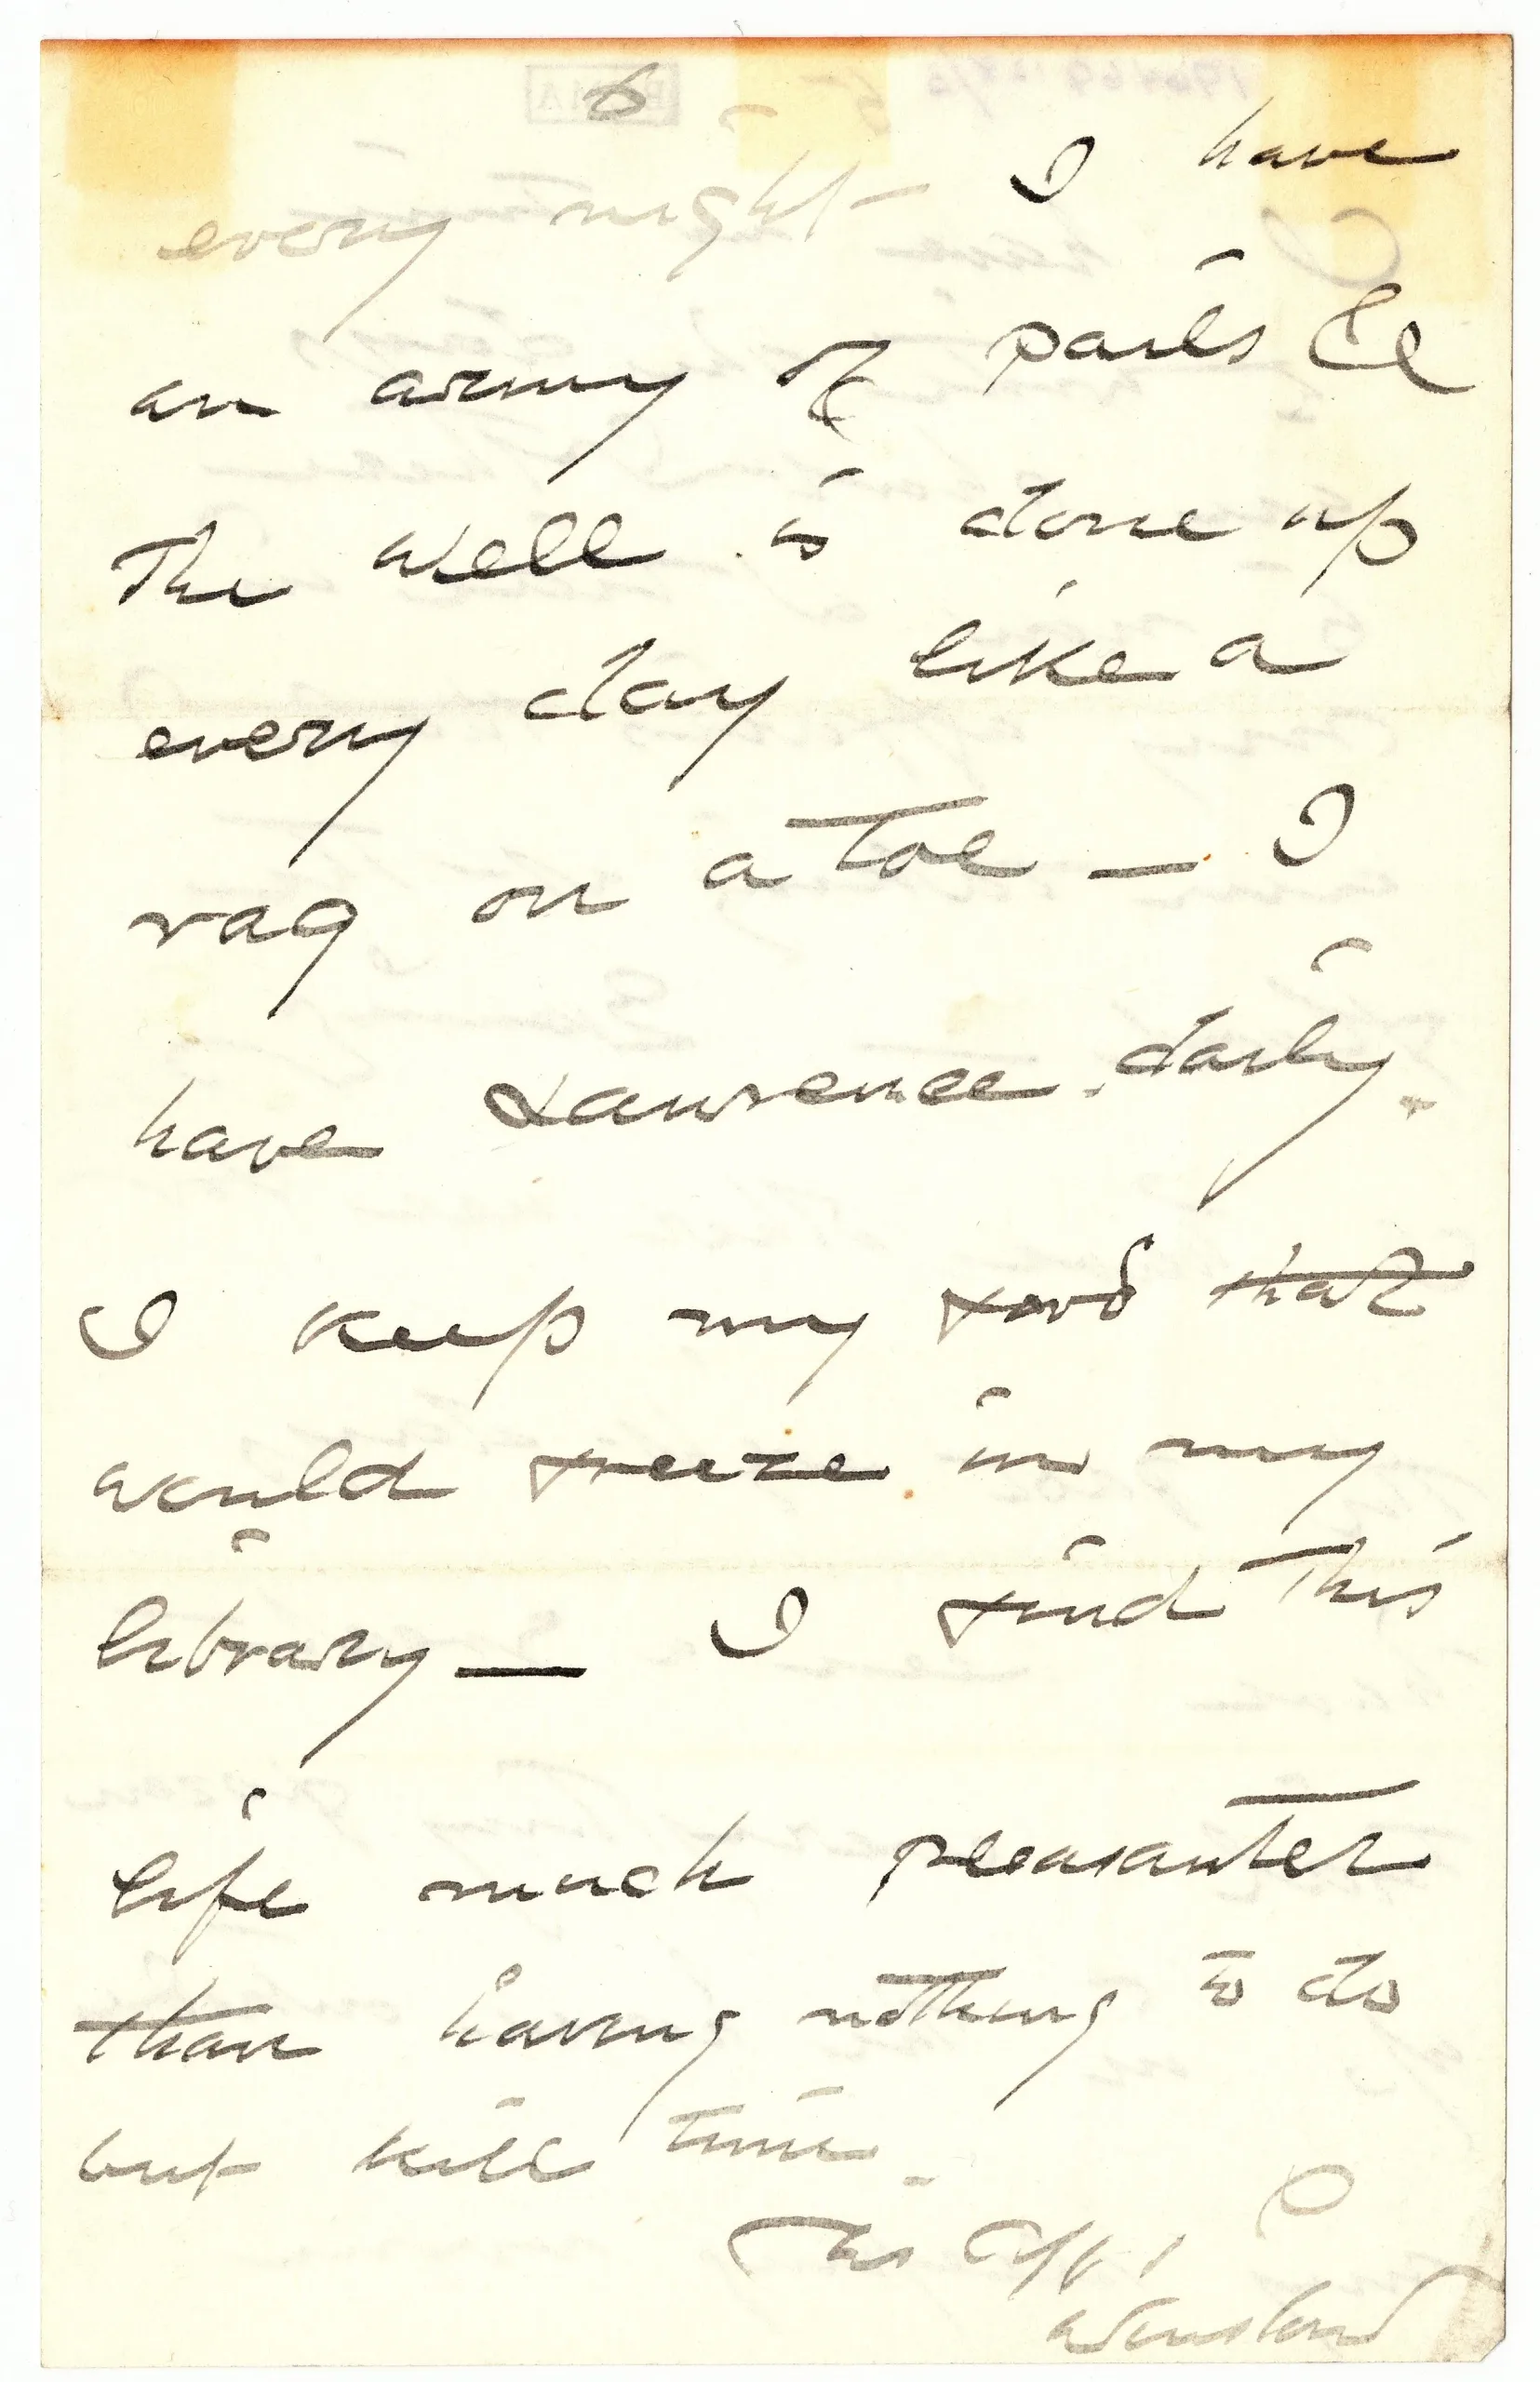 6
every night I have
an army of pails &
the well is done up
every day like a
rag on a toe — I
have Lawrence daily.
I keep my food that
would freeze in my
library — I find this
life much pleasanter
than having nothing to do
but kill time.